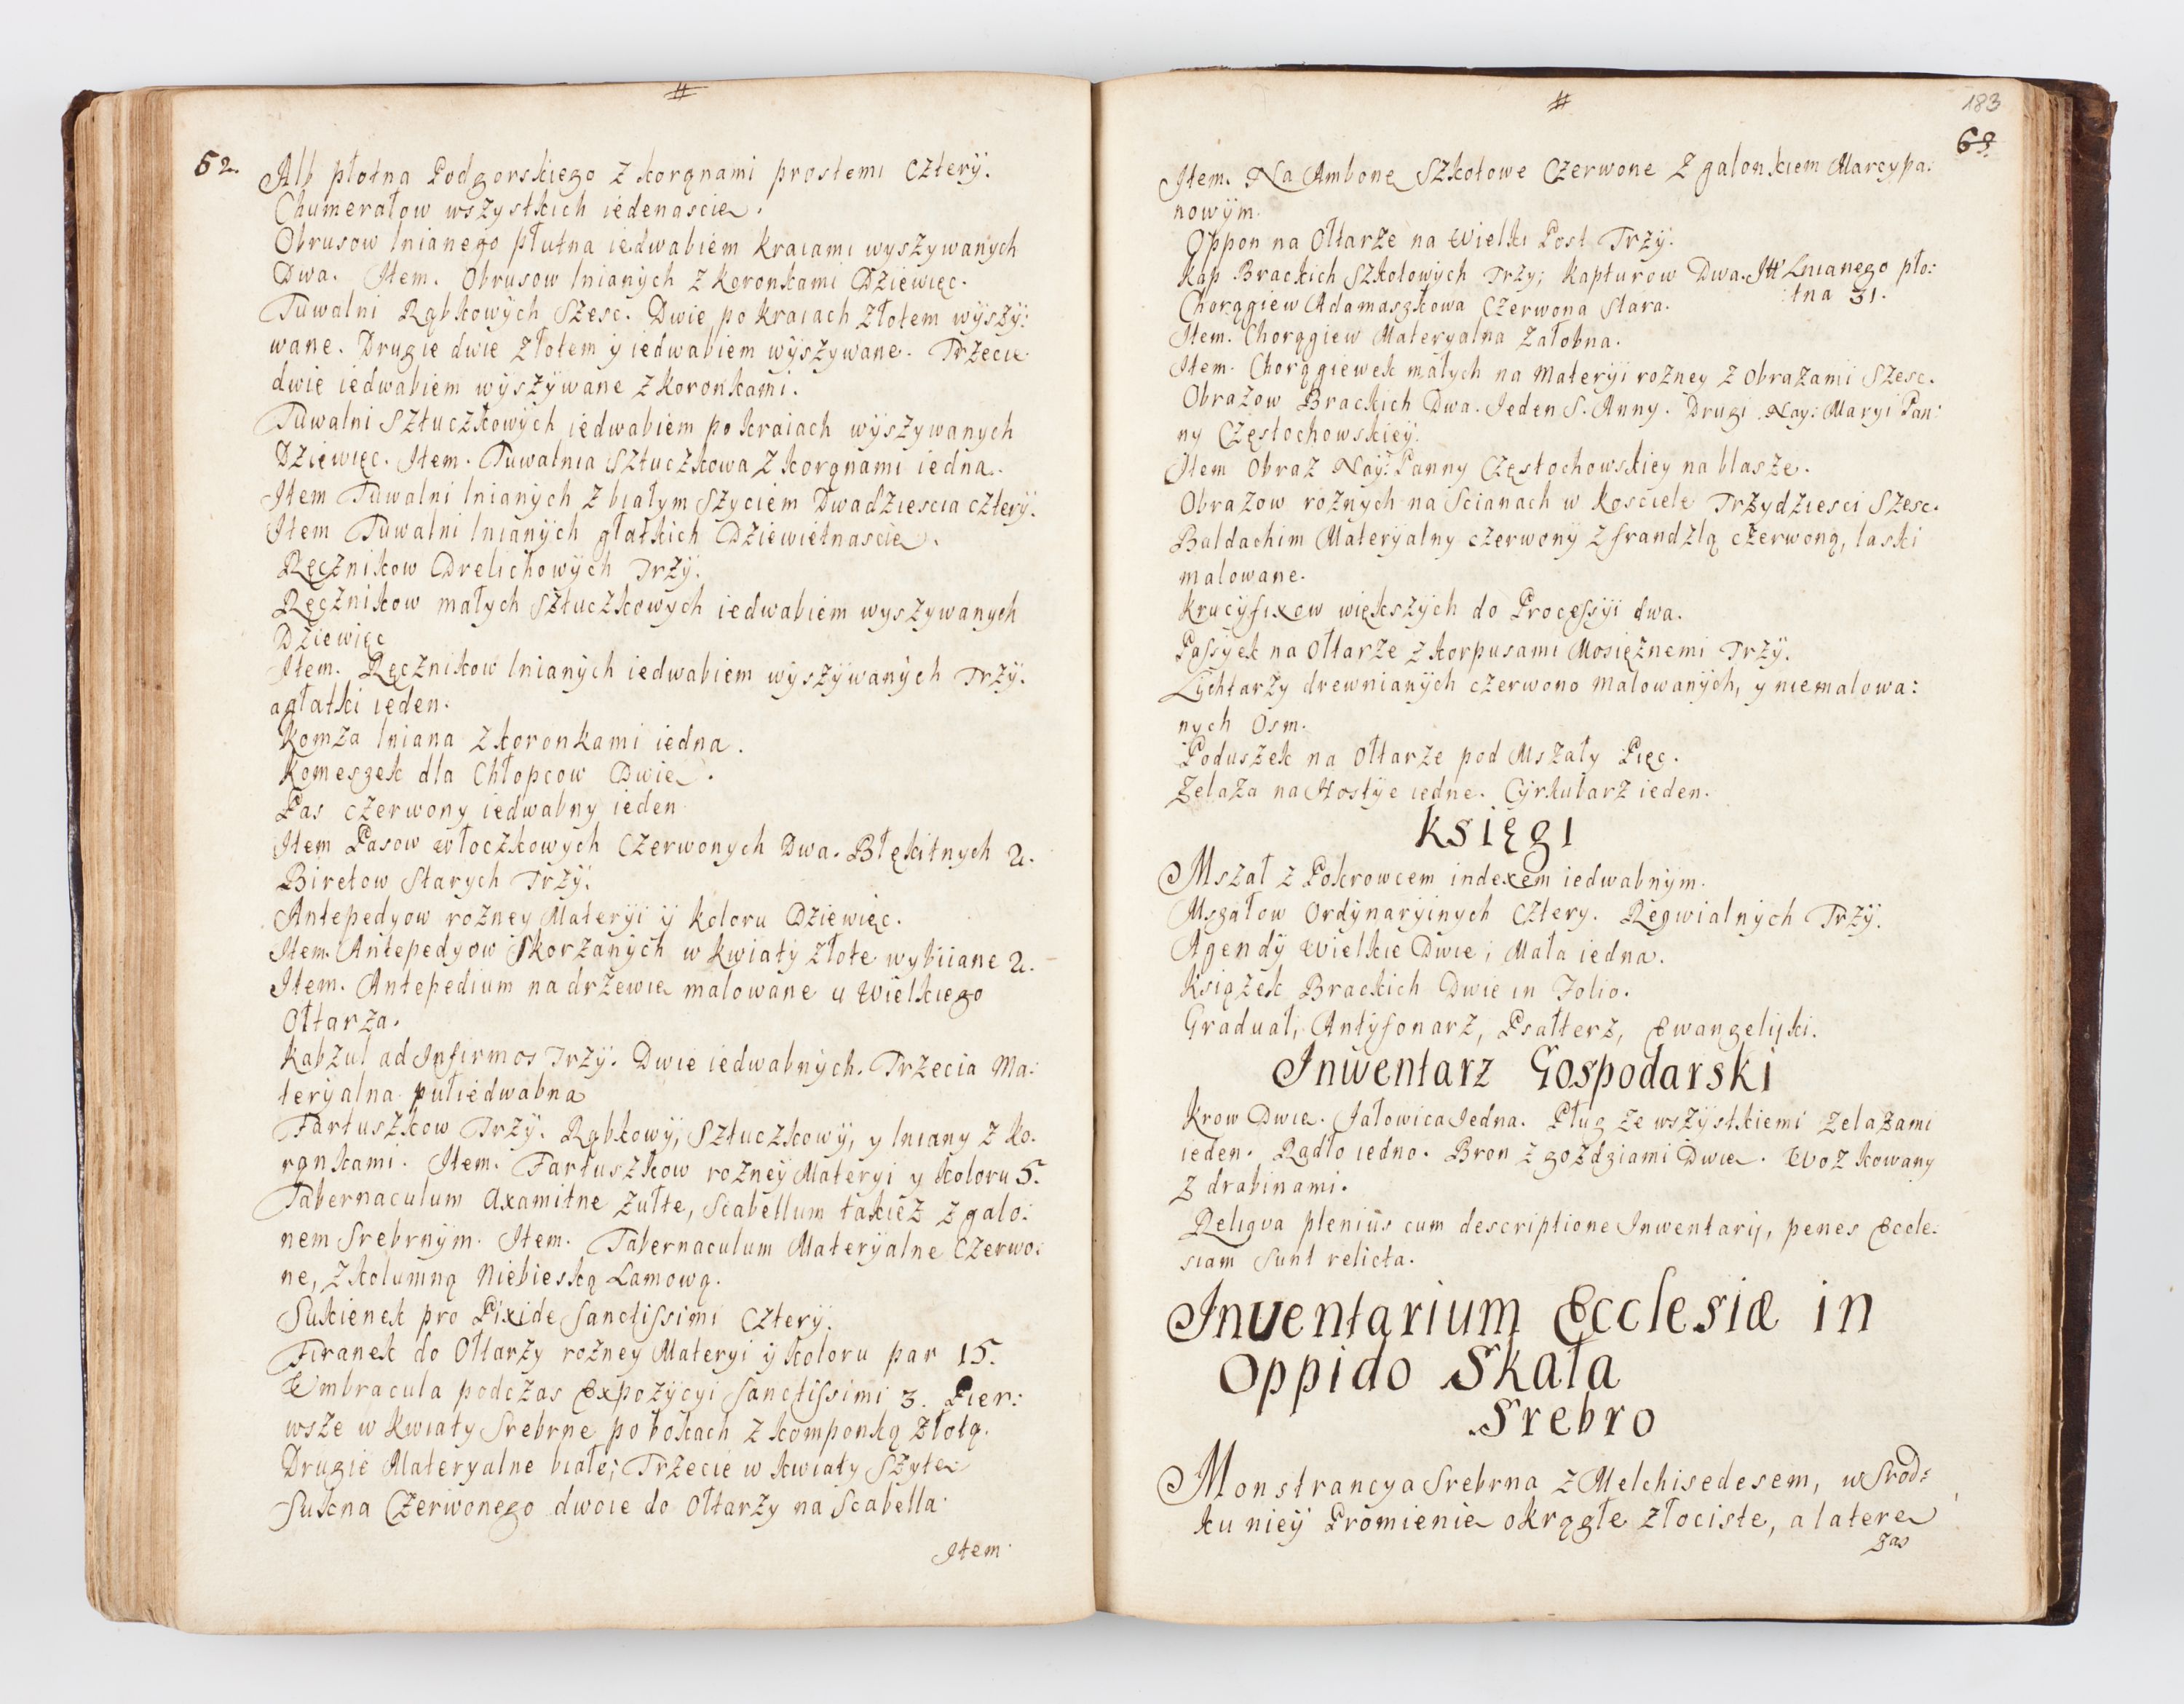 #
52.
Alb płotna Podgorskiego z korąnami prostemi Cztery.
Chumerałow wszystkich iedenascie.
Obrusow lnianego płutna iedwabiem kraiami wyszywanych
Dwa. Item. Obrusow lnianych z koronkami Dziewięc.
Tuwalni Rąbkowych Szesc. Dwie po kraiach złotem wyszy:
wane. Drugie dwie złotem y iedwabiem wyszywane. Trzecie
dwie iedwabiem wyszywane z koronkami.
Tuwalni Sztuczkowych iedwabiem po kraiach wyszywanych
Dziewięc. Item. Tuwalnia Sztuczkowa z korąnami iedna.
Item Tuwalni lnianych z białym szyciem Dwadziescia cztery.
Item Tuwalni lnianych głatkich Dziewietnascie.
Ręcznikow Drelichowych Trzy.
Ręcznikow małych Sztuczkowych iedwabiem wyszywanych
Dziewięc
Item. Ręcznikow lnianych iedwabiem wyszywanych Trzy.
a głatki ieden.
Komza lniana z koronkami iedna.
Komeszek dla Chłopcow Dwie.
Pas czerwony iedwabny ieden
Item Pasow włoczkowych Czerwonych Dwa. Błękitnych 2.
Biretow Starych Trzy.
Antepedyow rozney Materyi y koloru Dziewięc.
Item. Antepedyow Skorzanych w kwiaty złote wybiiane 2.
Item. Antepedium na drzewie malowane u Wielkiego
Ołtarza.
Kabzul ad Infirmos Trzy. Dwie iedwabnych. Trzecia Ma:
teryalna puliedwabna
Fartuszkow Trzy. Rąbkowy, Sztuczkowy, y lniany z ko.
rąnkami. Item. Fartuszkow rozney Materyi y koloru 5.
Tabernaculum Axamitne zułte, Scabellum takiez z galo:
nem Srebrnym. Item. Tabernaculum Materyalne Czerwo:
ne, z kolumną Niebieską Lamową.
Sukienek pro Pixide Sanctissimi Cztery.
Firanek do Ołtarzy rozney Materyi y koloru par 15.
Umbracula podczas Expozycyi Sanctissimi 3. Pier:
wsze w kwiaty Srebrne po bokach z komponką złotą.
Drugie Materyalne białe; Trzecie w kwiaty Szyte
Sukna Czerwonego dwoie do Ołtarzy na Scabella.
Item.
#
183
63.
Item. Na Ambonę Szkotowe Czerwone z galonkiem Marcypa:
nowym.
Oppon na Ołtarze na Wielki Post Trzy.
Kap Brackich Szkotowych Trzy; Kapturow Dwa. Itt Lnianego pło:
tna 31.
Chorągiew Adamaszkowa Czerwona Stara.
Item. Chorągiew Materyalna Załobna.
Item. Chorągiewek małych na Materyi rozney z Obrazami Szesc.
Obrazow Brackich Dwa. Ieden S. Anny. Drugi Nay: Maryi Pan:
ny Częstochowskiey.
Item Obraz Nay: Panny Częstochowskiey na blasze.
Obrazow roznych na Scianach w kosciele Trzydziesci Szesc.
Baldachim Materyalny czerwony z frandzlą czerwoną, laski
malowane.
Krucyfixow większych do Processyi dwa.
Passyek na Ołtarze z korpusami Mosięznemi Trzy.
Lychtarzy drewnianych czerwono malowanych, y niemalowa:
nych Osm.
Poduszek na Ołtarze pod Mszały Pięc.
Zelaza na Hostye iedne. Cyrkularz ieden.
Księgi
Mszał z Pokrowcem indexem iedwabnym.
Mszałow Ordynaryinych Cztery. Reqwialnych Trzy.
Agendy Wielkie Dwie; Mała iedna.
Książek Brackich Dwie in Folio.
Graduał, Antyfonarz, Psałterz, Ewangeliyki.
Inwentarz Gospodarski
Krow Dwie. Jałowica Iedna. Pług ze wszystkiemi Zelazami
ieden. Radło iedno. Bron z gozdziami Dwie. Woz kowany
z drabinami.
Reliqva plenius cum descriptione Inwentarij, penes Eccle:
siam sunt relicta.
Inventarium Ecclesiæ in
Oppido Skała
Srebro
Monstrancya Srebrna z Melchisedesem, w Srod:
ku niey Promienie okrągłe złociste, a latere
zas